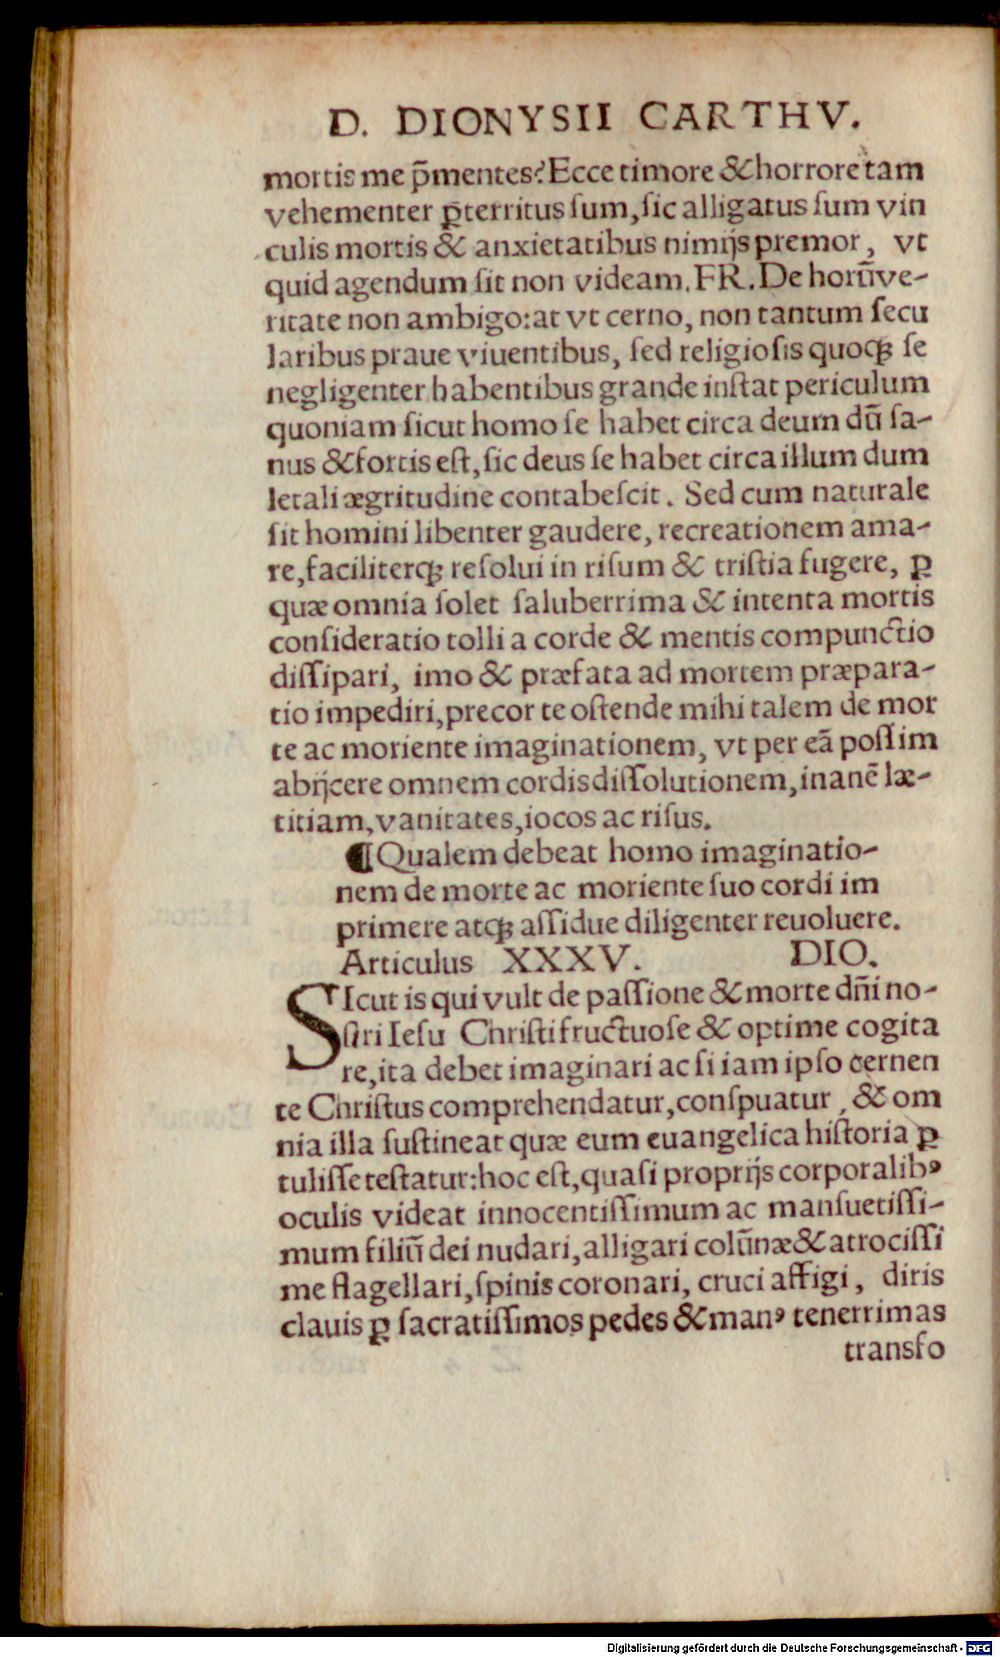 D. DIONYSII CARTHV.
mortis me p̃mentes? Ecce timore & horrore tam
vehementer p̃territus ſum, ſic alligatus ſum vin
culis mortis & anxietatibus nimijs premor, vt
quid agendum ſit non videam. FR. De horũ ve-
ritate non ambigo: at vt cerno, non tantum ſecu
laribus praue viuentibus, ſed religioſis quoqꝫ ſe
negligenter habentibus grande inſtat periculum
quoniam ſicut homo ſe habet circa deum dũ ſa-
nus & fortis eſt, ſic deus ſe habet circa illum dum
letali ægritudine contabeſcit. Sed cum naturale
ſit homini libenter gaudere, recreationem ama-
re, faciliterqꝫ reſolui in riſum & triſtia fugere, ꝑ
quæ omnia ſolet ſaluberrima & intenta mortis
conſideratio tolli a corde & mentis compunctio
diſſipari, imo & præfata ad mortem præpara-
tio impediri, precor te oſtende mihi talem de mor
te ac moriente imaginationem, vt per eã poſſim
abijcere omnem cordis diſſolutionem, inanẽ læ-
titiam, vanitates, iocos ac riſus.
¶ Qualem debeat homo imaginatio-
nem de morte ac moriente ſuo cordi im
primere atqꝫ aſſidue diligenter reuoluere.
Articulus XXXV. DIO.
SIcut is qui vult de paſſione & morte dñi no-
ſtri Ieſu Chriſti fructuoſe & optime cogita
re, ita debet imaginari ac ſi iam ipſo cernen
te Chriſtus comprehendatur, conſpuatur, & om
nia illa ſuſtineat quæ eum euangelica hiſtoria ꝑ
tuliſſe teſtatur: hoc eſt, quaſi proprijs corporalibꝰ
oculis videat innocentiſſimum ac manſuetiſſi-
mum filiũ dei nudari, alligari colũnæ & atrociſſi
me flagellari, ſpinis coronari, cruci affigi, diris
clauis ꝑ ſacratiſſimos pedes & manꝰ tenerrimas
transfo
Digitalisierung gefördert durch die Deutsche Forschungsgemeinschaft - DFG